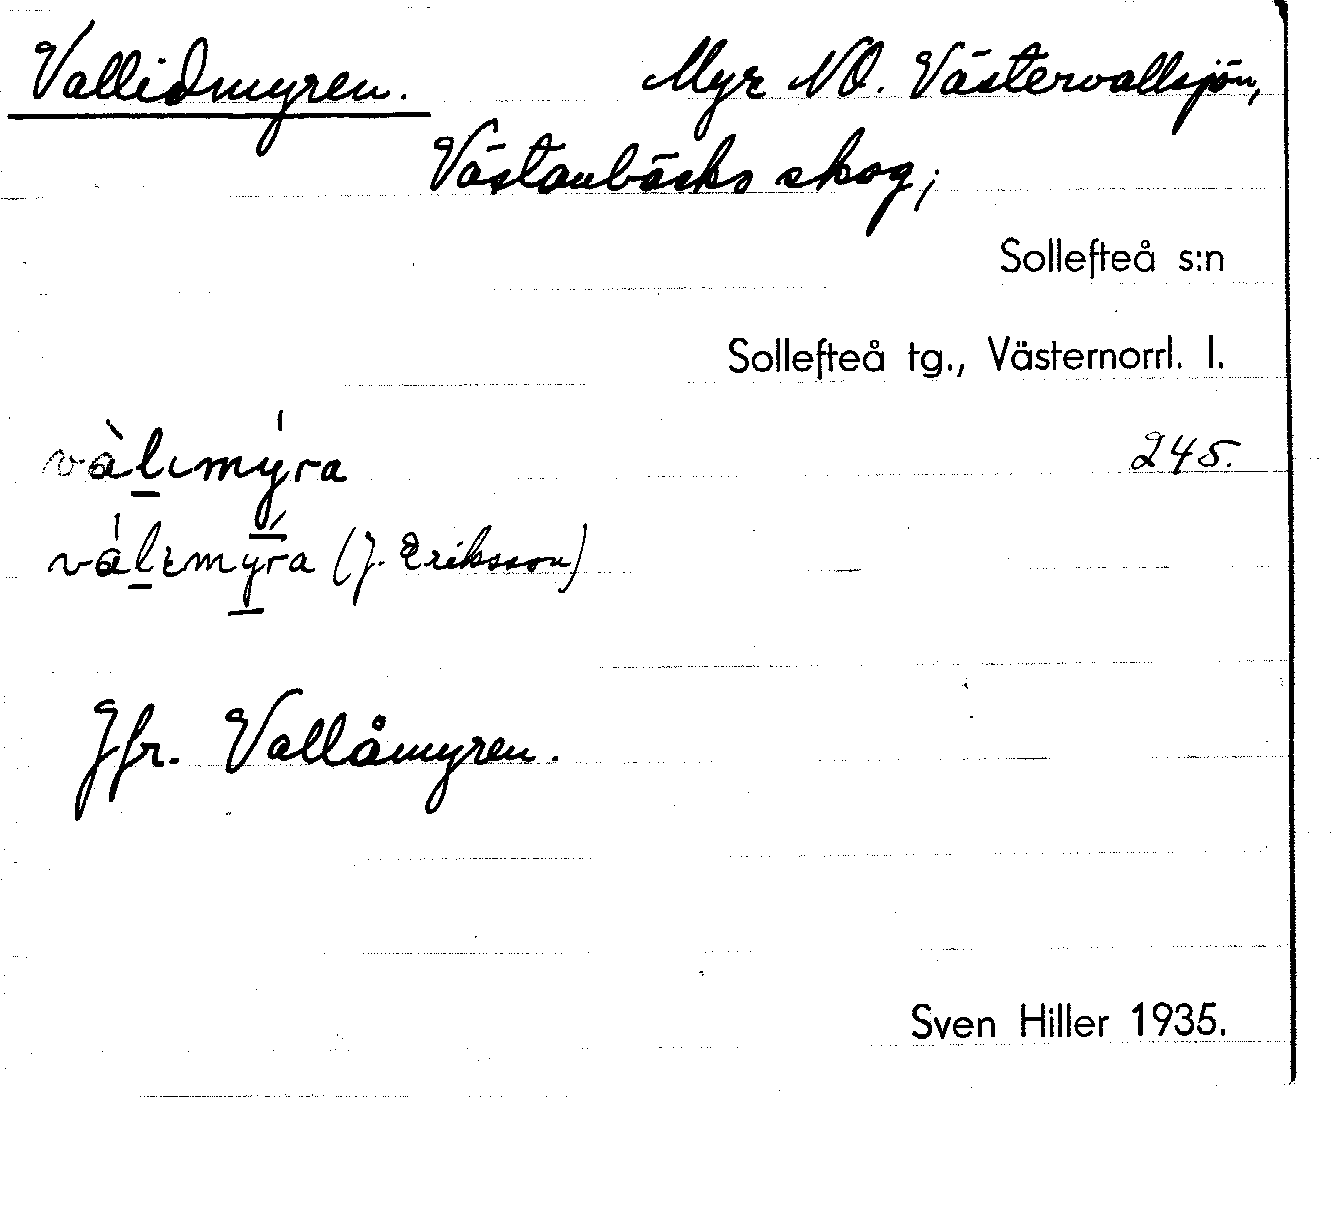 Vallidmyren. Myr NO. Västervallsjön,
Västanbäcks skog;
Sollefteå s:n
Sollefteå tg., Västernorrl. l.
vàlımýra 245.
válımýra (J. Eriksson)
Jfr. Vallåmyren.
Sven Hiller 1935.